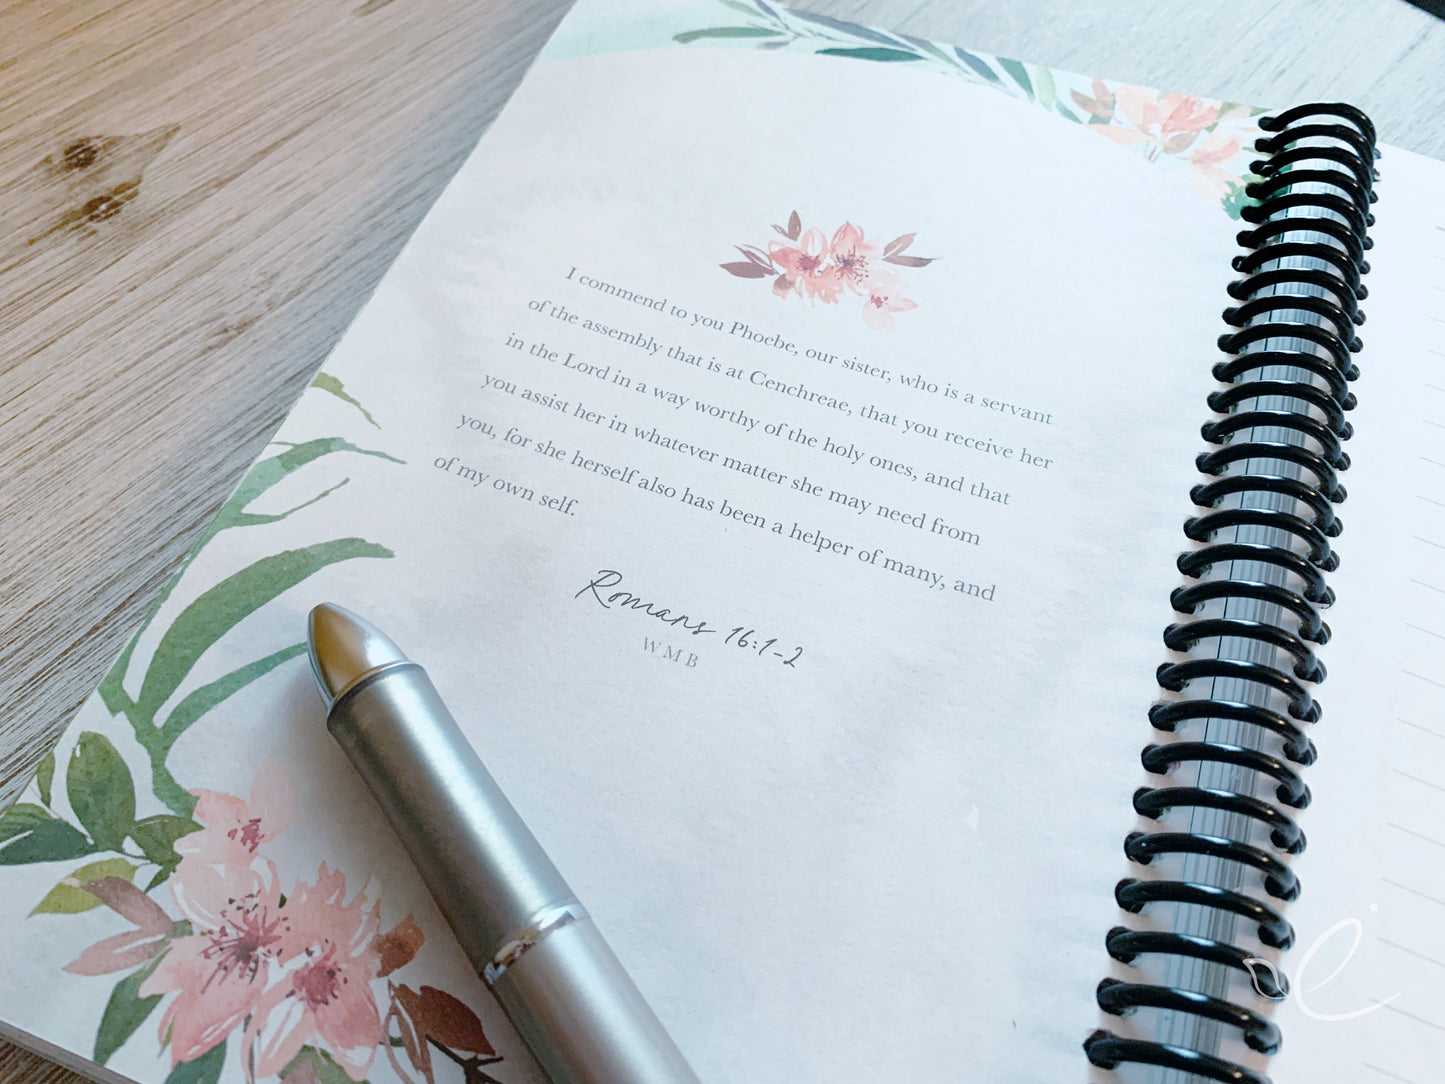 I commend to you Phoebe, our sister, who is a servant
of the assembly that is at Cenchreae, that you receive her
in the Lord in a way worthy of the holy ones, and that
you assist her in whatever matter she may need from
you, for she herself also has been a helper of many, and
of my own self.
Romans 16:1-2
WMB